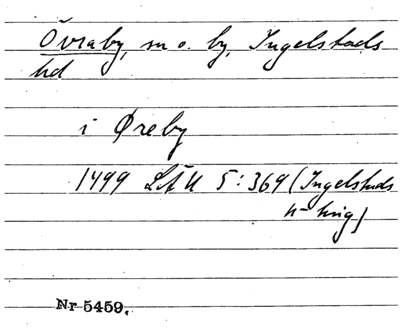 Övraby, sn o. by, Ingelstads
hd
i Øreby
1499 LÄU 5:369 (Ingelstads
n-hrig)
Nr 5459.